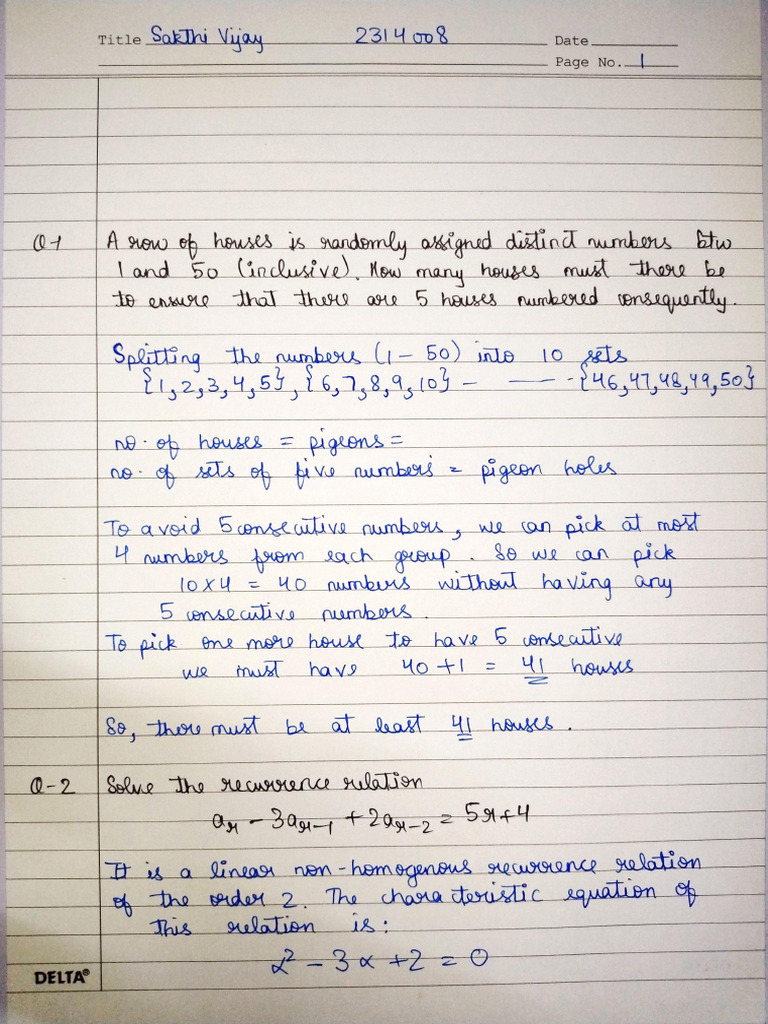 Title Sakthi Vijay 2314008 Date
Page No. 1
Q-1 A row of houses is randomly assigned distinct numbers btw
1 and 50 (inclusive). How many houses must there be
to ensure that there are 5 houses numbered consequently.
Splitting the numbers (1 - 50) into 10 sets
{1,2,3,4,5}, {6,7,8,9,10} - —— - {46,47,48,49,50}
no. of houses = pigeons =
no. of sets of five numbers = pigeon holes
To avoid 5 consecutive numbers, we can pick at most
4 numbers from each group. So we can pick
10 x 4 = 40 numbers without having any
5 consecutive numbers.
To pick one more house to have 5 consecutive
we must have 40 + 1 = 41 houses
So, there must be at least 41 houses.
Q-2 Solve the recurrence relation
aᵣ - 3aᵣ₋₁ + 2aᵣ₋₂ = 5r+4
It is a linear non-homogenous recurrence relation
of the order 2. The characteristic equation of
this relation is:
α² - 3α + 2 = 0
DELTA®